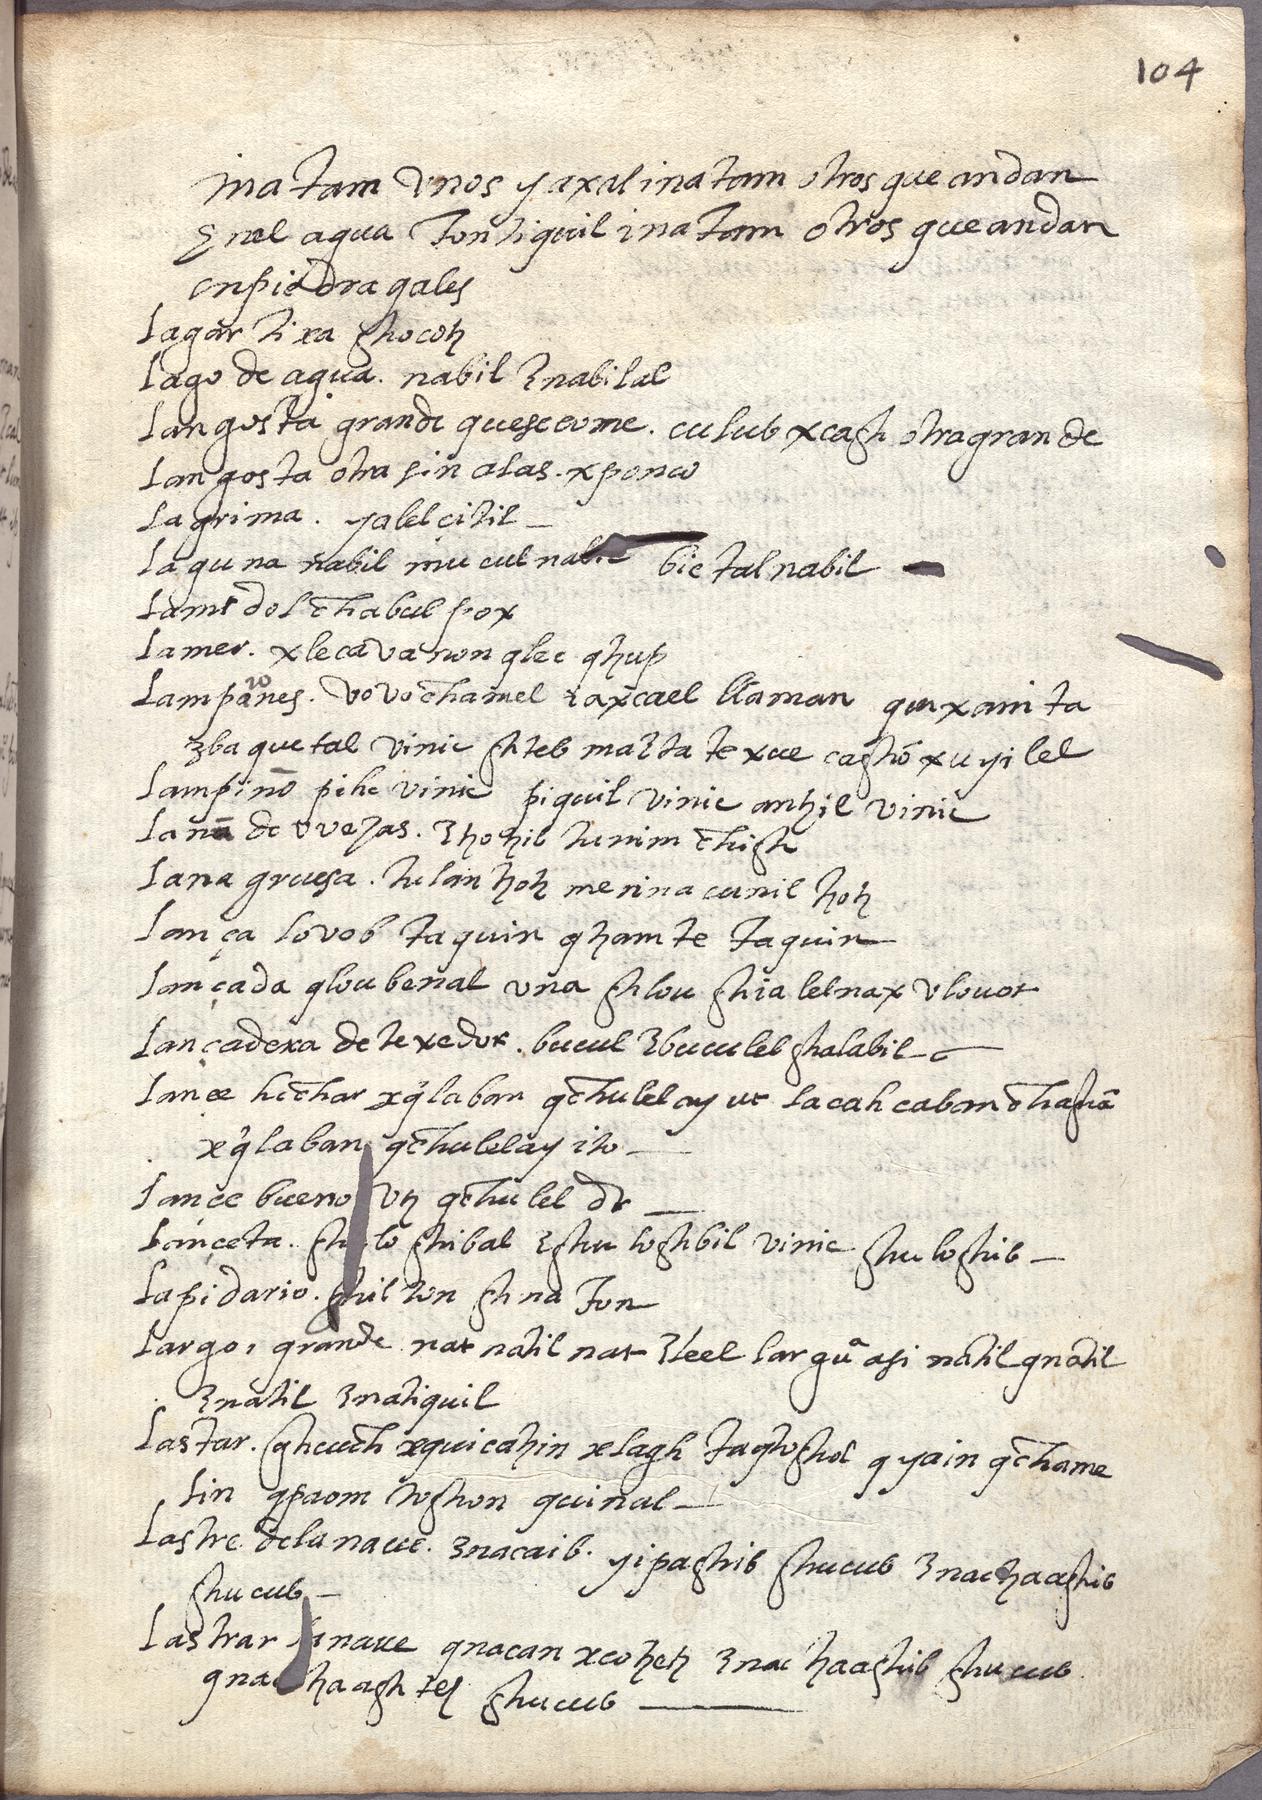 104
inatam vnos yaxal inatam otros que andan
enel agua tontiquil inatam otros que andan
en piedragales
Lagartixa ghocoh
Lago de agua. nabil Znabilal
Langosta grande quese come. culub xcagh otra grande
Langosta otra sin alas. xponco
Lagrima. yalel çitil
Laguna nabil mucul nabil bictal nabil
Lamedol chabul pox
Lamer. xlecavanon qlec qhup
Lamparones. vovochamel
Zba quetal vinic
Lampiño pihc vinic piquil vinic anhil vinic
Lana de ovejas. Zhohil tunim chigh
Lana gruesa. tulan hoh merina cunil hoh
Lança lovob taquin qhamte taquin
Lançada qlou benal una ghlou ghialelnax vlouot
Lançadera de texedor. bucul Zbuculel ghalabil
Lançe hechar xq̃laban qchulelay ur lacah caban
xq̃laban qchulelay ito
Lançe bueno vh qchulel
Lançeta. ghibal Zghuloghbil vinic ghuloghib
Lapidario. ghil ton ghna ton
Largo, grande nat natil nat Zleel asi natil qnatil
Znatil Znatiquil
Lastar. xquicahin xlagh q yain qchame
lin qpaom toghon quinal
Lastre dela naue. Znacaib. yipaghib ghucub Znachaaghib
ghucub
Lastrar la naue qnacan xcoheh Znachaaghib ghucub
ghucub